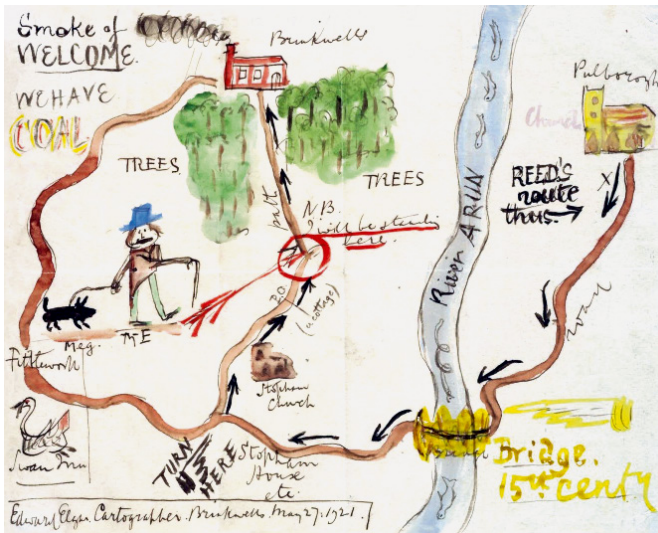 Smoke of
WELCOME.
WE HAVE
COAL
Brinkwells
Pulborough
Church
TREES
TREES
REED'S
route
thus.
X
path
N.B.
I will be standing
here.
River ARUN
way
P.O.
(a cottage)
Meg.
ME
Fittleworth
Swan Inn
Stopham
Church
TURN
HERE
Stopham
House
etc.
Bridge.
15th centy
Edward Elgar. Cartographer. Brinkwells. May 27. 1921.